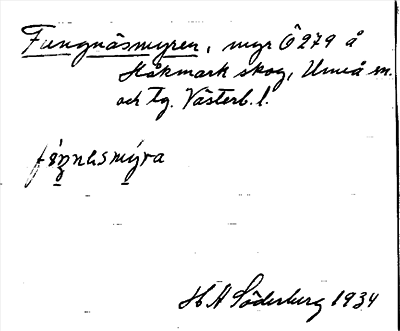 Fungnäsmyren, myr Ö 279 å
Håkmark skog, Umeå sn.
och tg. Västerb. l.
H A Söderberg 1934